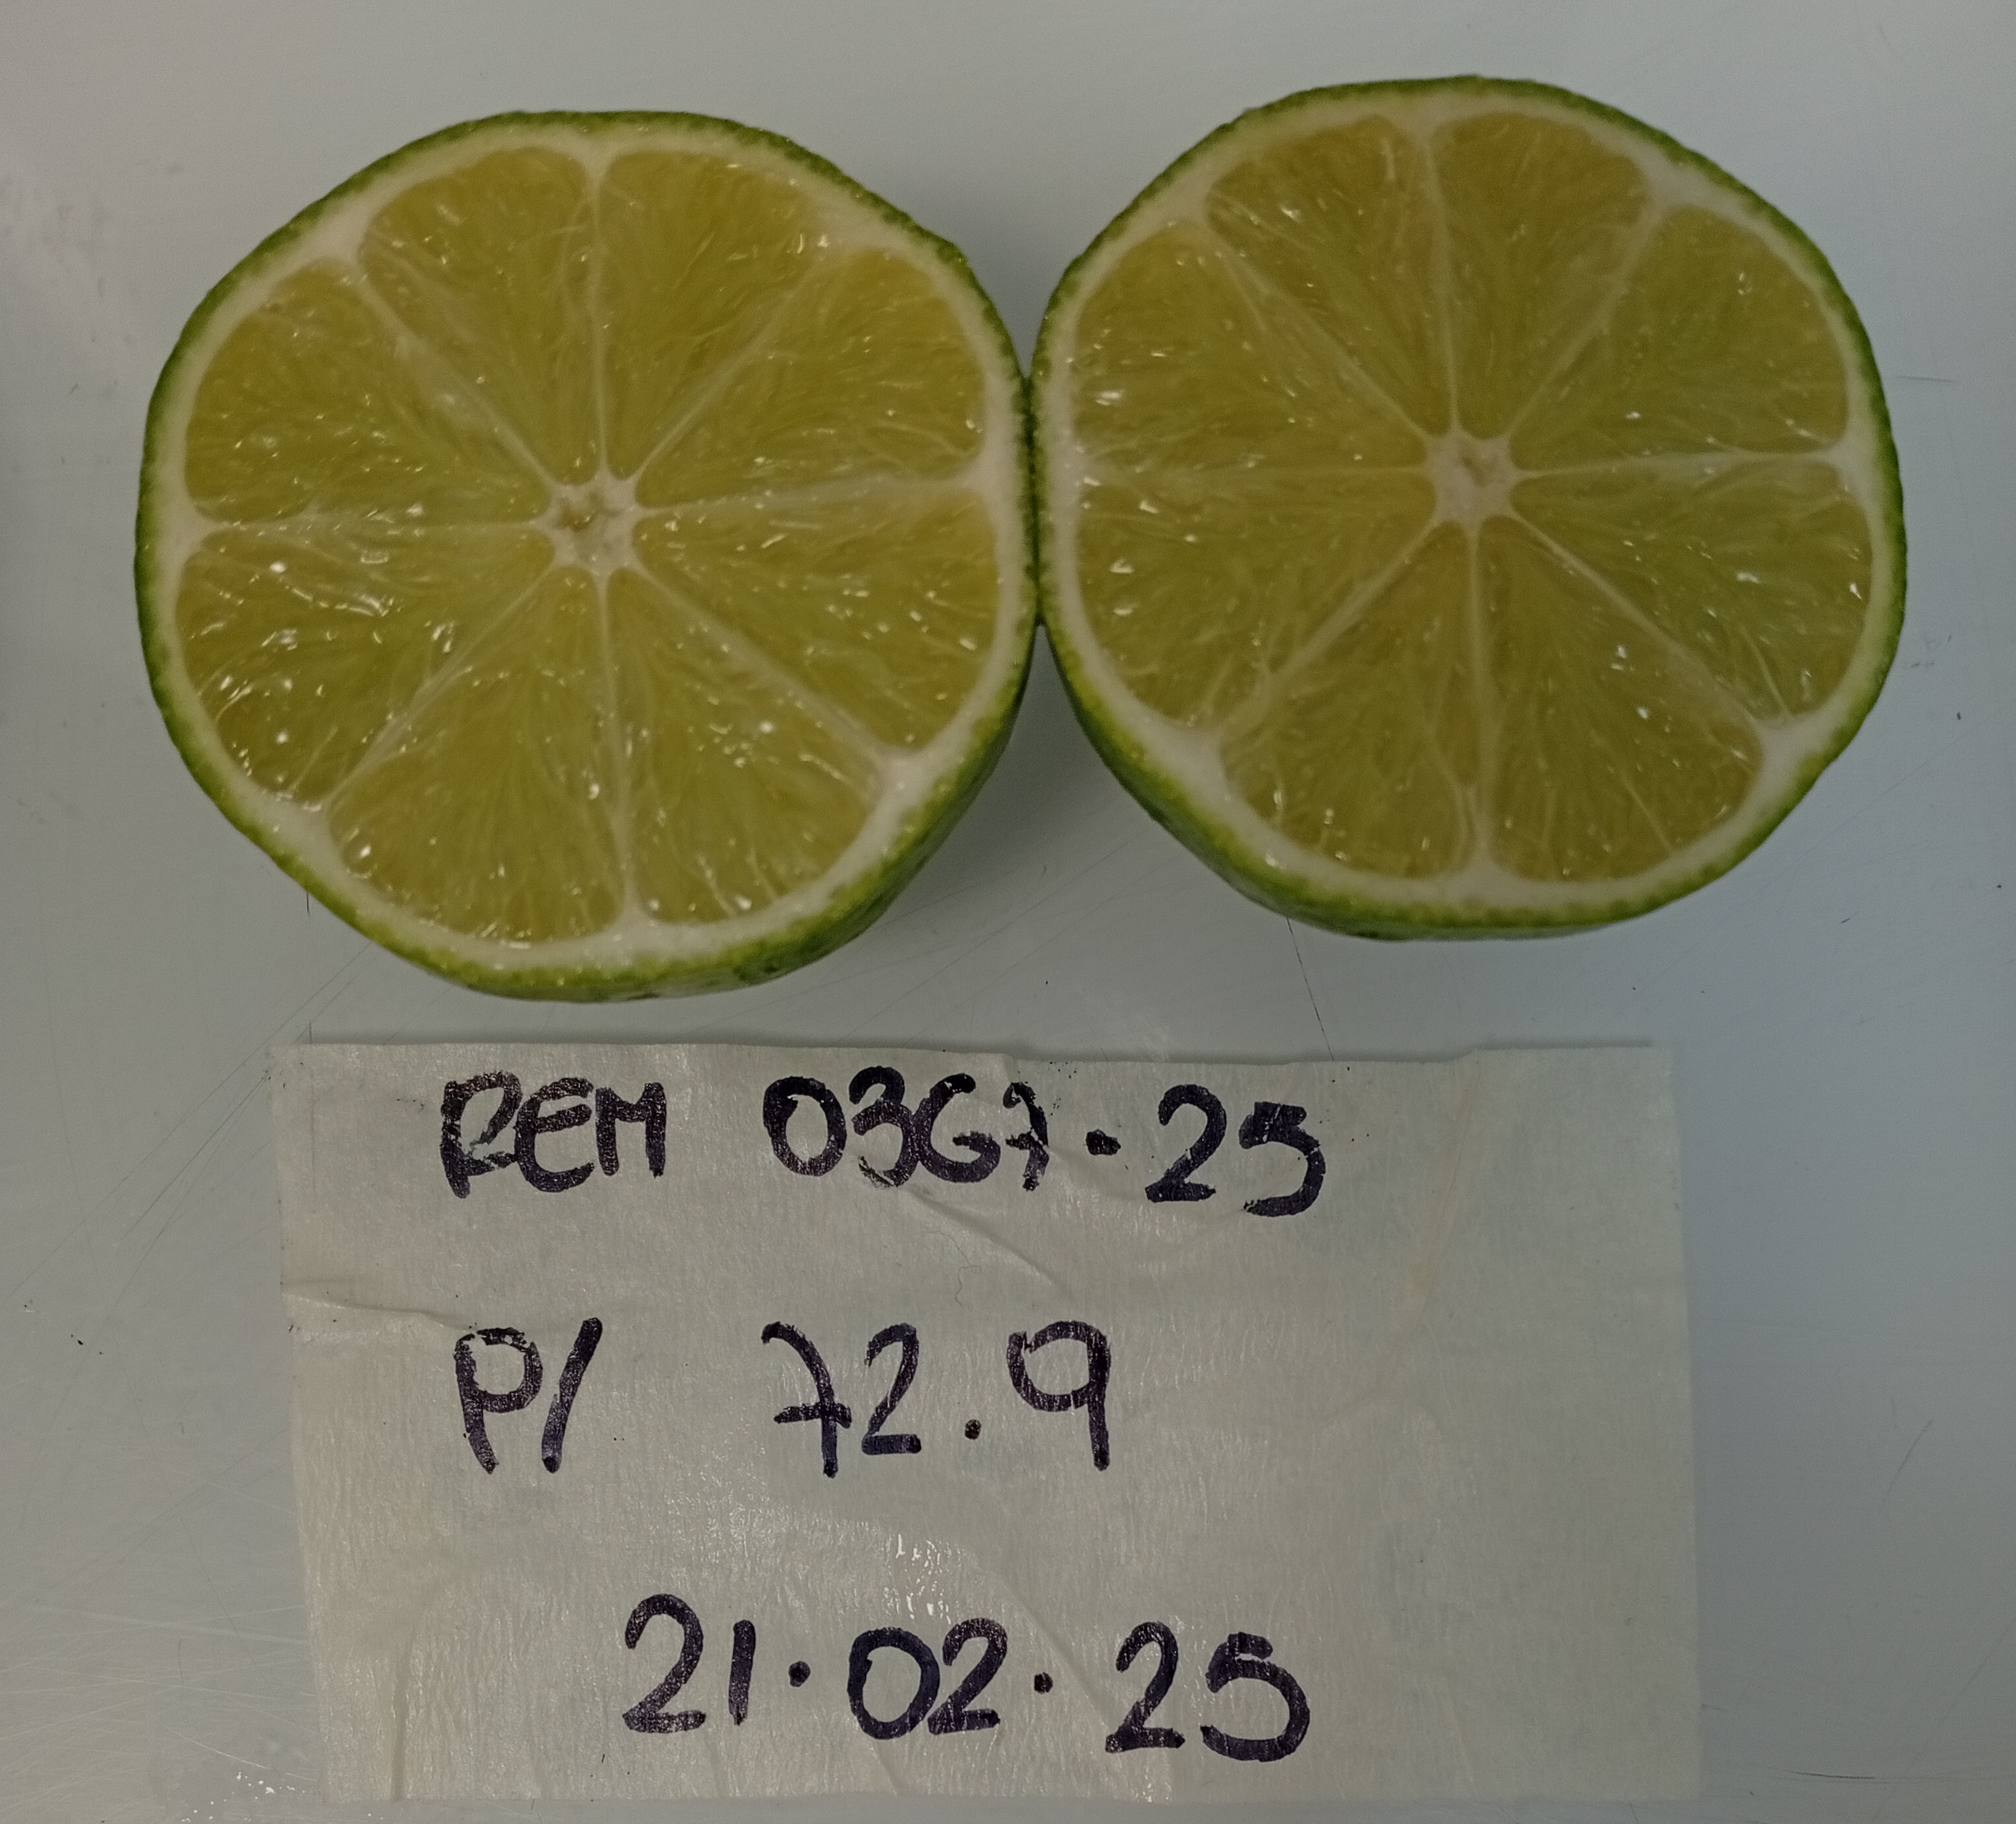 REM 0367.25
P/ 72.9
21.02.25